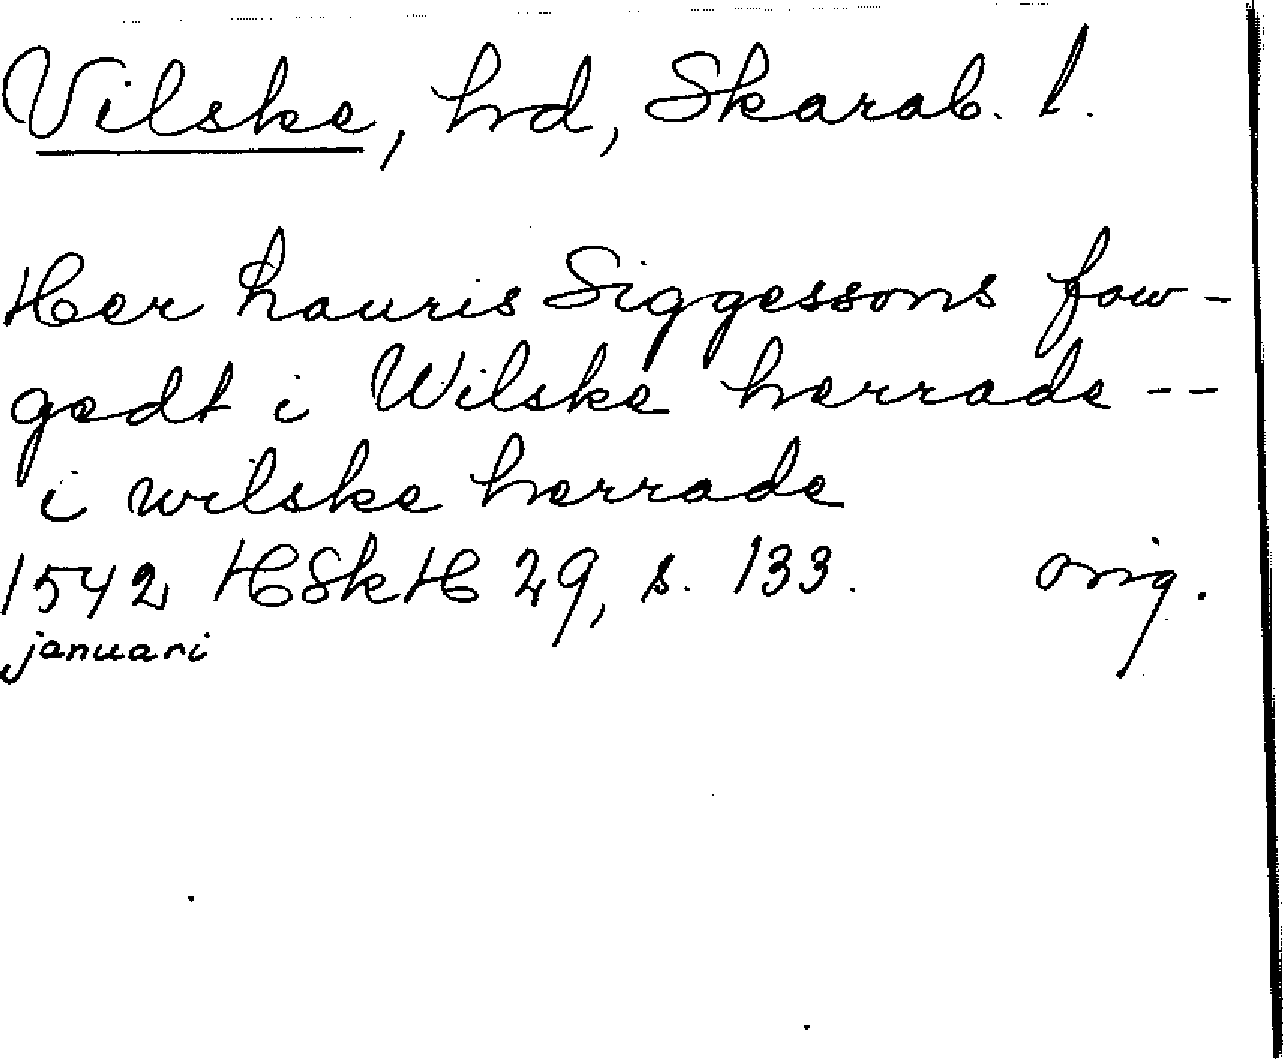 Vilske, hd, Skarab. l.
Her Lauris Siggessons fow-
gedt i Wilske herrade --
i wilske herrade
1542 HSkH 29, s. 133. orig.
januari